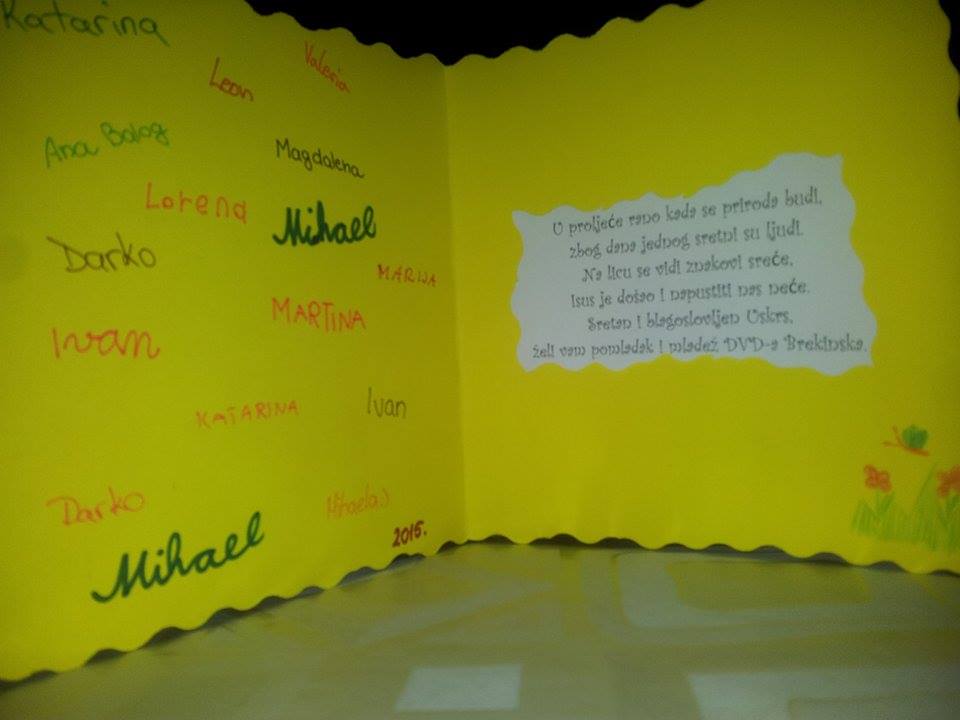 Katarina
Valeria
Leon
Ana Balog
Magdalena
Lorena
Mihael
Darko
MARIJA
MARTINA
Ivan
KATARINA
Ivan
Darko
Mihaela:)
Mihael
2015.
U proljeće rano kada se priroda budi,
zbog dana jednog sretni su ljudi.
Na licu se vidi znakovi sreće,
Isus je došao i napustiti nas neće.
Sretan i blagoslovljen Uskrs,
želi vam pomladak i mladež DVD-a Brekinska.